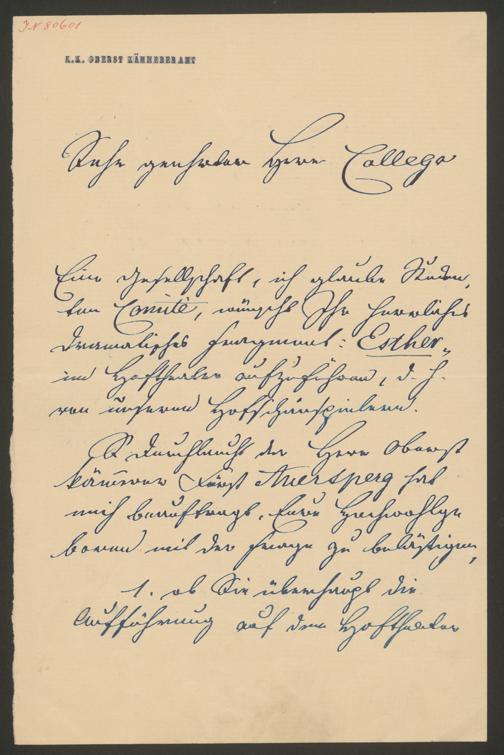 J.N 80601
K.K. OBERST KÄMMERERAMT
Sehr geehrter Herr Collega
Eine Gesellschaft, ich glaube Studen-
ten Comité, wünscht Ihr herrliches
dramatisches Fragment: Esther„
im Hoftheater aufzuführen, d. h.
von unseren Hofschauspielern.
S Durchlaucht der Herr Oberst
kämmerer Fürst Auersperg hat
mich beauftragt, Euer Hochwohlge
boren mit der Frage zu belästigen,
1. ob Sie überhaupt die
Aufführung auf dem Hoftheater